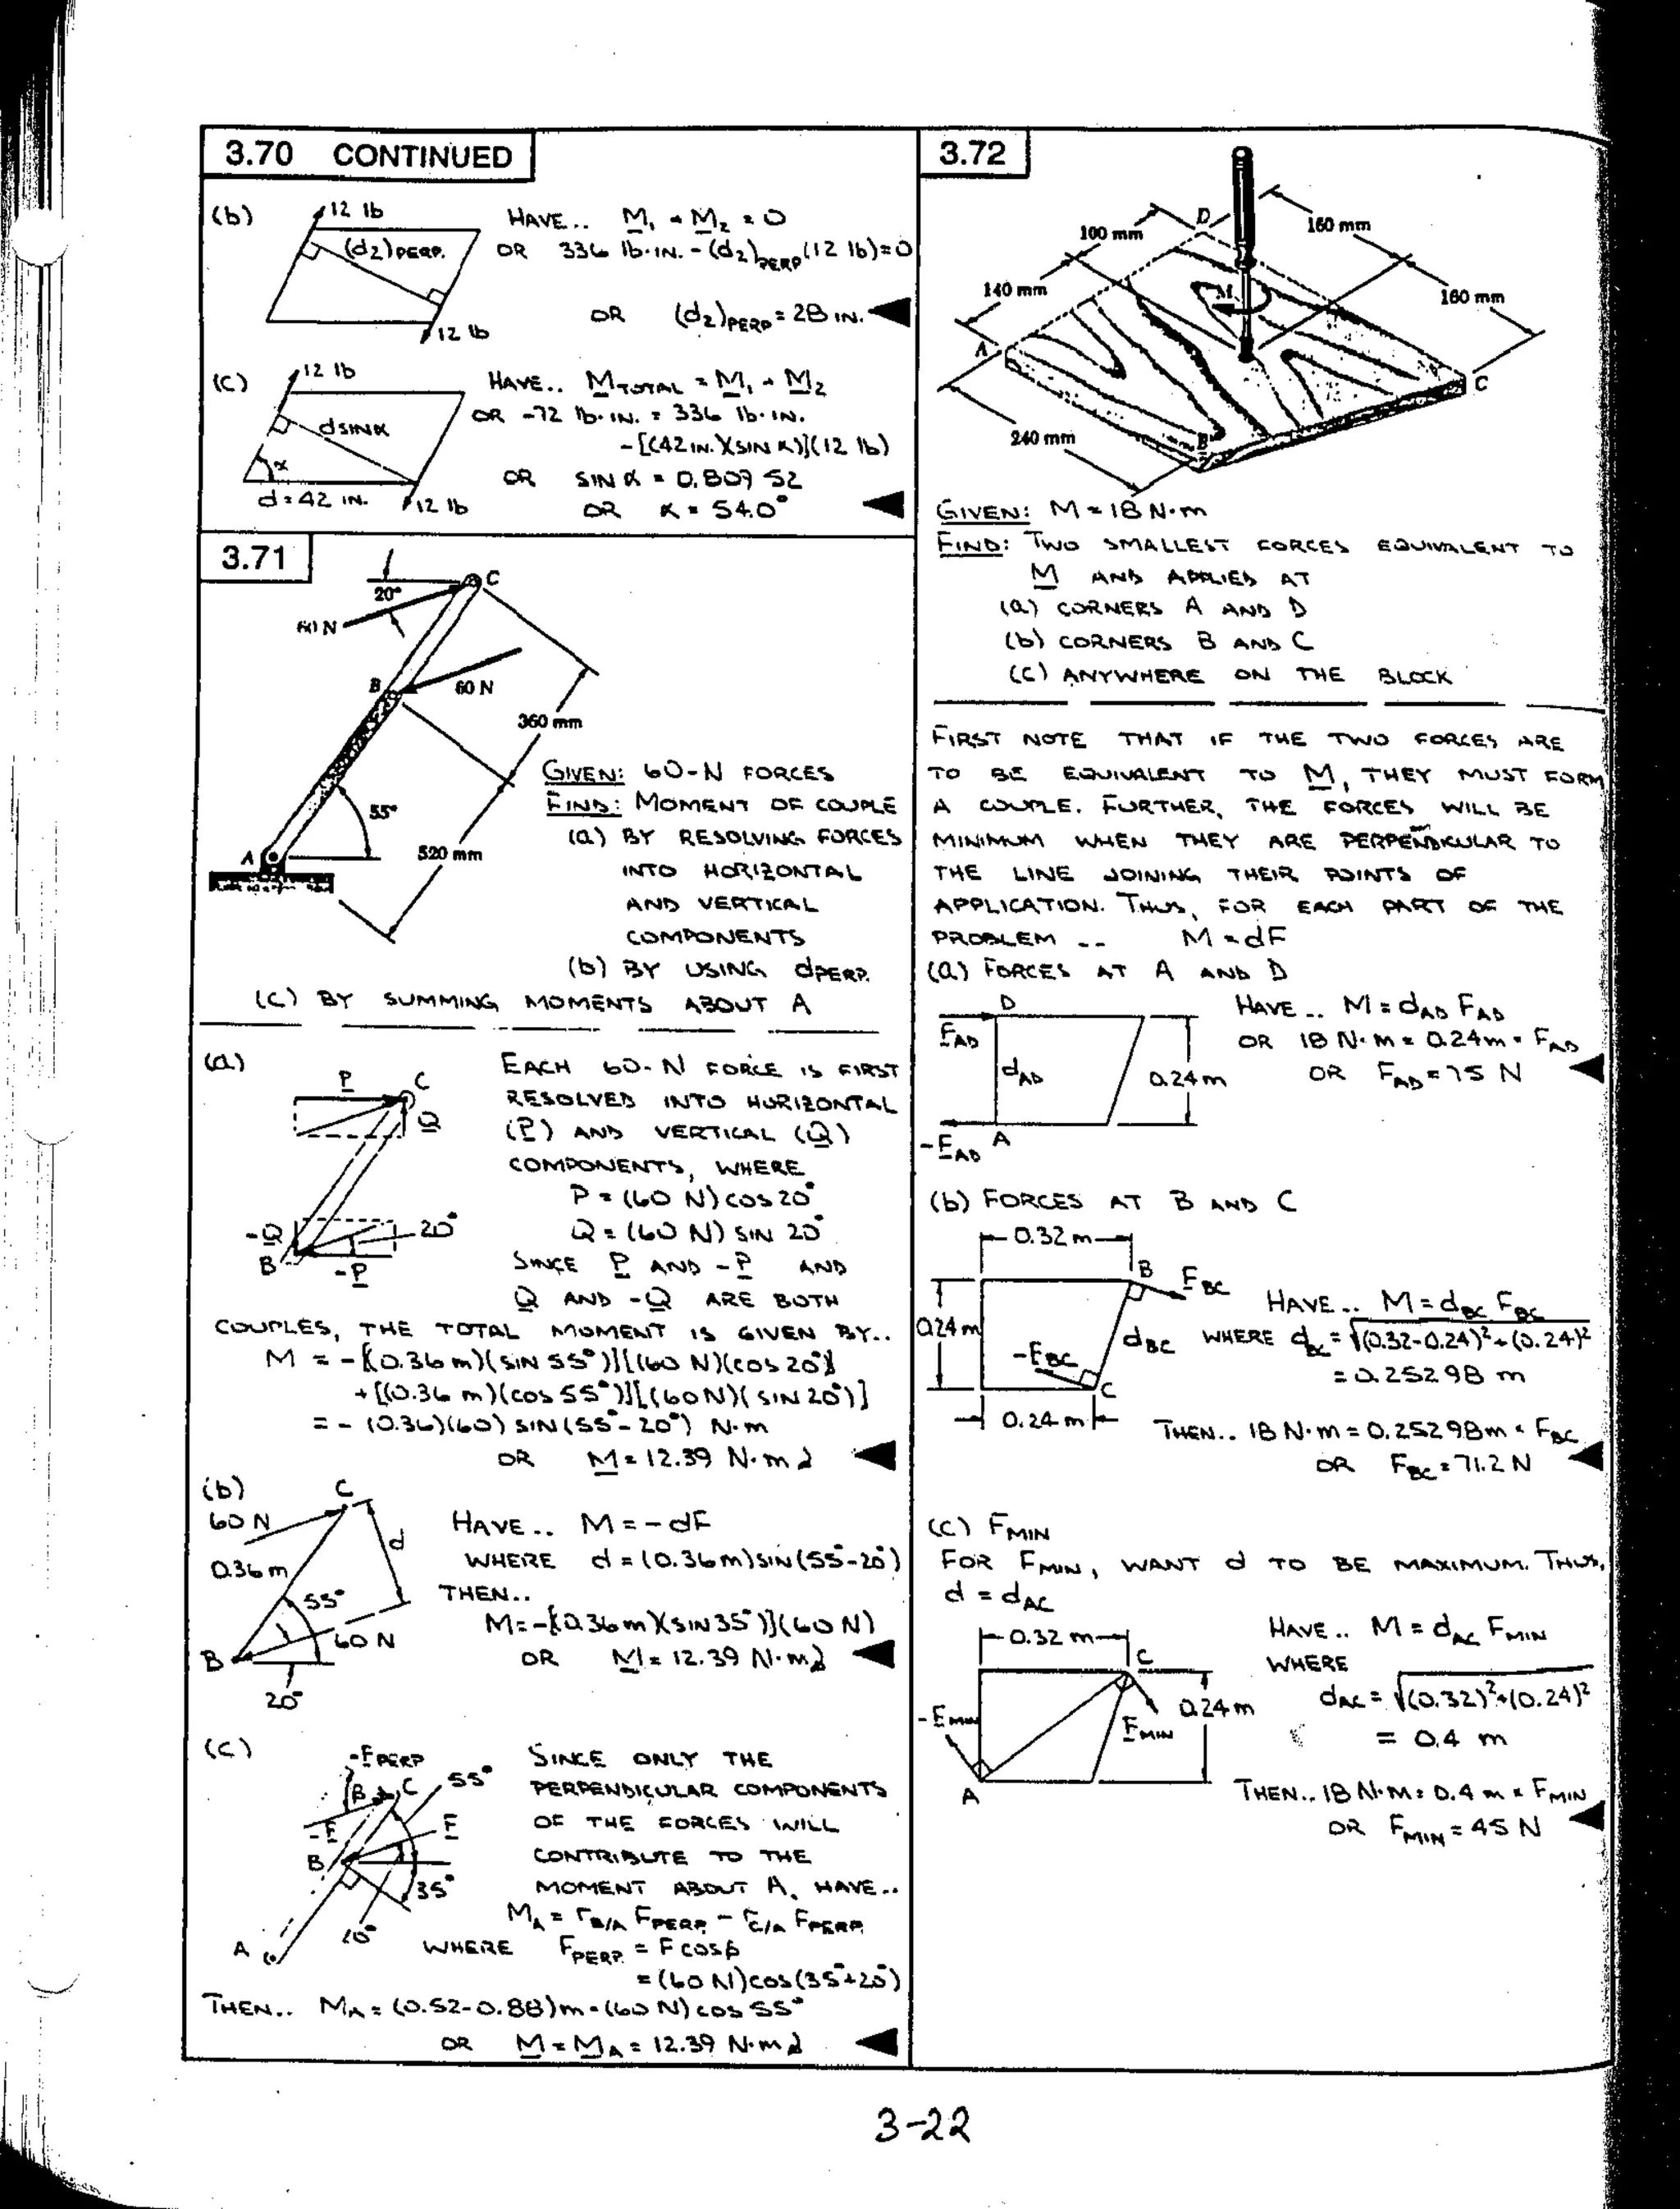 3.70 CONTINUED
(b)
12 lb
(d₂)PERP.
12 lb
HAVE.. M₁ + M₂ = 0
OR 336 lb·IN. - (d₂)PERP(12 lb)=0
OR (d₂)PERP = 28 IN.
(C)
12 lb
d SIN α
α
d = 42 IN.
12 lb
HAVE.. MTOTAL = M₁ + M₂
OR -72 lb·IN. = 336 lb·IN.
-[(42 IN.)(SIN α)](12 lb)
OR SIN α = 0.809 52
OR α = 54.0°
3.71
20°
C
60 N
B
60 N
360 mm
55°
A
520 mm
GIVEN: 60-N FORCES
FIND: MOMENT OF COUPLE
(a) BY RESOLVING FORCES
INTO HORIZONTAL
AND VERTICAL
COMPONENTS
(b) BY USING dPERP.
(C) BY SUMMING MOMENTS ABOUT A
(a)
P
C
Q
-Q
20°
B
-P
EACH 60-N FORCE IS FIRST
RESOLVED INTO HORIZONTAL
(P) AND VERTICAL (Q)
COMPONENTS, WHERE
P = (60 N) COS 20°
Q = (60 N) SIN 20°
SINCE P AND -P AND
Q AND -Q ARE BOTH
COUPLES, THE TOTAL MOMENT IS GIVEN BY..
M = -[(0.36 m)(SIN 55°)][(60 N)(COS 20°)]
+ [(0.36 m)(COS 55°)][(60 N)(SIN 20°)]
= - (0.36)(60) SIN(55° - 20°) N·m
OR M = 12.39 N·m ↲
(b)
C
60 N
d
0.36 m
55°
60 N
B
20°
HAVE.. M = -dF
WHERE d = (0.36 m) SIN(55°-20°)
THEN..
M = -[(0.36 m)(SIN 35°)](60 N)
OR M = 12.39 N·m ↲
(C)
-FPERP
β
C
55°
-F
F
B
35°
20°
A
SINCE ONLY THE
PERPENDICULAR COMPONENTS
OF THE FORCES WILL
CONTRIBUTE TO THE
MOMENT ABOUT A, HAVE..
MA = rB/A FPERP. - rC/A FPERP.
WHERE FPERP. = F COS β
= (60 N) COS(35°+20°)
THEN.. MA = (0.52-0.88)m × (60 N) COS 55°
OR M = MA = 12.39 N·m ↲
3.72
D
100 mm
160 mm
140 mm
M
160 mm
A
C
B
240 mm
GIVEN: M = 18 N·m
FIND: TWO SMALLEST FORCES EQUIVALENT TO
M AND APPLIED AT
(a) CORNERS A AND D
(b) CORNERS B AND C
(C) ANYWHERE ON THE BLOCK
FIRST NOTE THAT IF THE TWO FORCES ARE
TO BE EQUIVALENT TO M, THEY MUST FORM
A COUPLE. FURTHER, THE FORCES WILL BE
MINIMUM WHEN THEY ARE PERPENDICULAR TO
THE LINE JOINING THEIR POINTS OF
APPLICATION. THUS, FOR EACH PART OF THE
PROBLEM -- M = dF
(a) FORCES AT A AND D
D
FAD
dAD
0.24 m
-FAD
A
HAVE -- M = dAD FAD
OR 18 N·m = 0.24 m × FAD
OR FAD = 75 N
(b) FORCES AT B AND C
0.32 m
B
FBC
0.24 m
dBC
-FBC
C
0.24 m
HAVE.. M = dBC FBC
WHERE dBC = √(0.32-0.24)² + (0.24)²
= 0.25298 m
THEN.. 18 N·m = 0.25298 m × FBC
OR FBC = 71.2 N
(C) FMIN
FOR FMIN, WANT d TO BE MAXIMUM. THUS,
d = dAC
0.32 m
C
-FMIN
FMIN
0.24 m
A
HAVE.. M = dAC FMIN
WHERE
dAC = √(0.32)²+(0.24)²
= 0.4 m
THEN.. 18 N·m = 0.4 m × FMIN
OR FMIN = 45 N
3-22